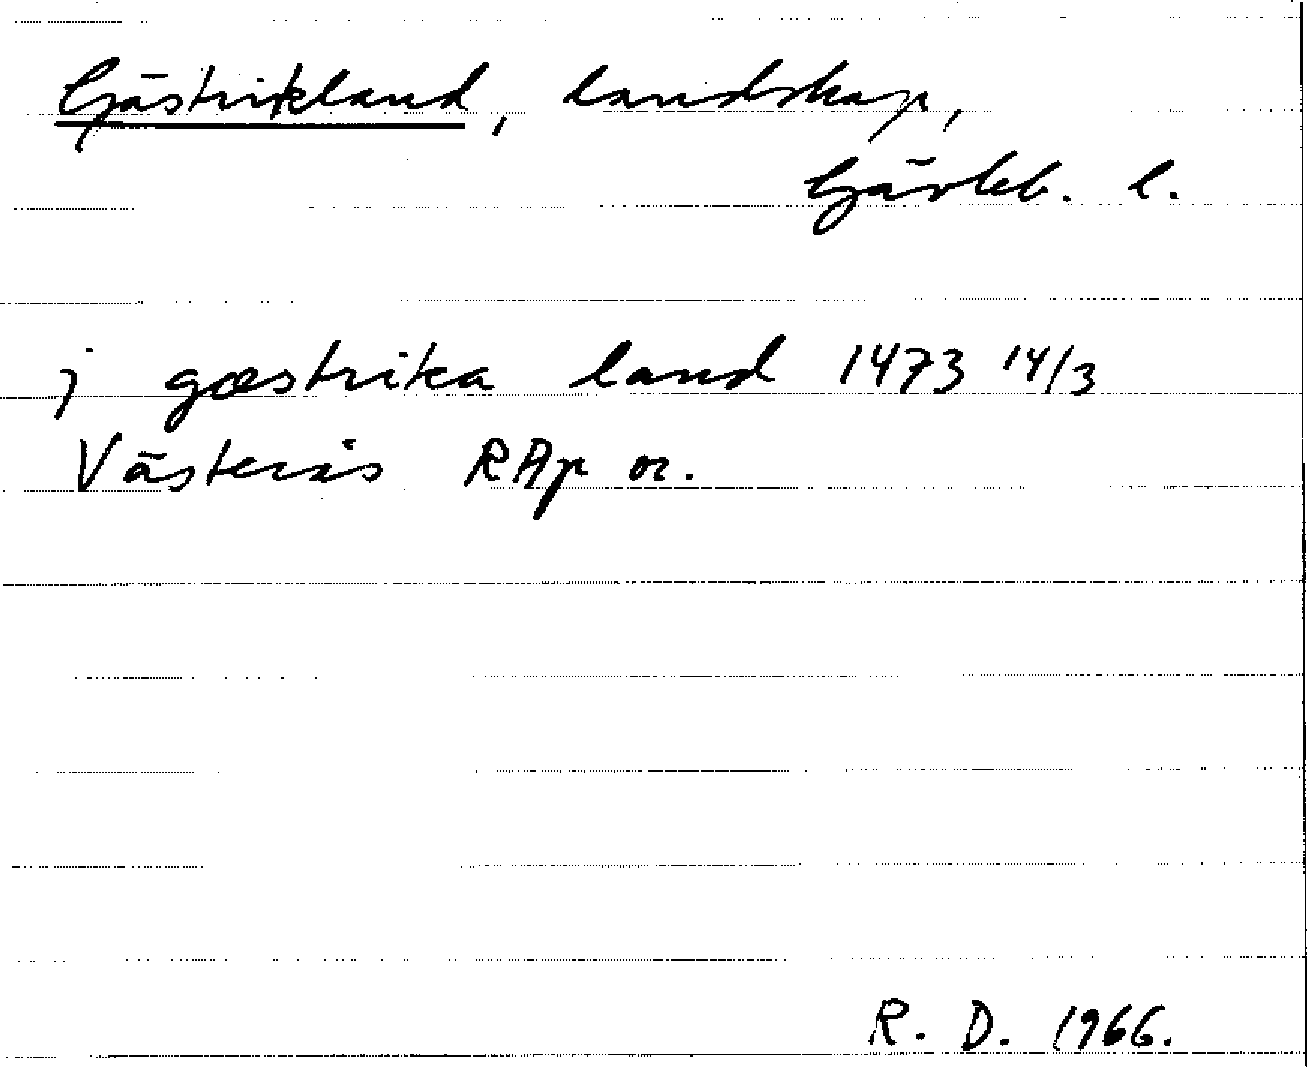 Gästrikland, landskap,
Gävleb. l.
j gæstrika land 1473 14/3
Västerås RAp or.
R. D. 1966.